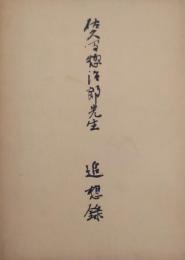 佐久間惣治郎先生 追想録